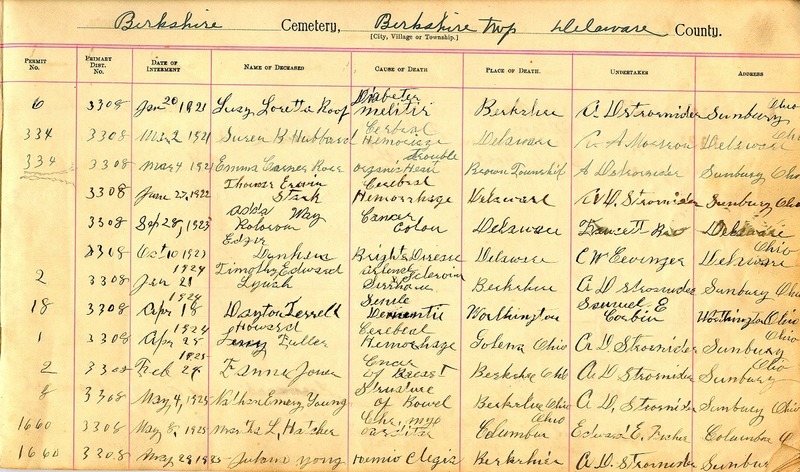 Berkshire Cemetery, Berkshire twp Delaware County.
[City, Village or Township.]
PERMIT No. PRIMARY DIST. No. DATE OF INTERMENT NAME OF DECEASED CAUSE OF DEATH PLACE OF DEATH. UNDERTAKER ADDRESS
6 3308 Jan 20 1921 Lucy Loretta Roof Diabetes Melitis Berkshire A D Strosnider Sunbury Ohio
334 3308 2 1921 Susen K Hubbard Cerbral Delaware Delaware Ohio
334 3308 4 1921 Emma Carnes Rose organic Heart trouble Brown Township A D Strosnider Sunbury Ohio
3308 June 27, 1922 Thomas Erwin Stark Cerebral Hemorrhage Delaware A. D. Strosnider Sunbury Ohio
3308 Sep 28, 1923 Adda May Cancer Colon Delaware Fawcett Bro Delaware Ohio
3308 Oct 10 1923 Edgar Dunham Brights Disease Delaware C W Delaware
2 3308 Jan 21 1924 Timothy Edward Lynch Berkshire A D Strosnider Sunbury Ohio
18 3308 Apr 18 1924 Dayton Terrell Senile Dementia Worthington Samuel E Corbin Worthington Ohio
1 3308 Apr 25 1924 Howard Fuller Cerebral Hemorrhage Galena Ohio A. D. Strosnider Sunbury Ohio
2 3308 Feb 28 1925 Fannie Jones Cancer of Breast Berkshire Ohio A. D. Strosnider Sunbury Ohio
8 3308 May 4, 1925 Nathan Emery Young of Bowel Berkshire Ohio A. D. Strosnider Sunbury Ohio
1660 3308 May 8, 1925 L. Hatcher Columbus Ohio Edward E. Fisher Columbus O
1660 3308 May 28 1925 Juliana Young Hemiplegia Berkshire A. D. Strosnider Sunbury